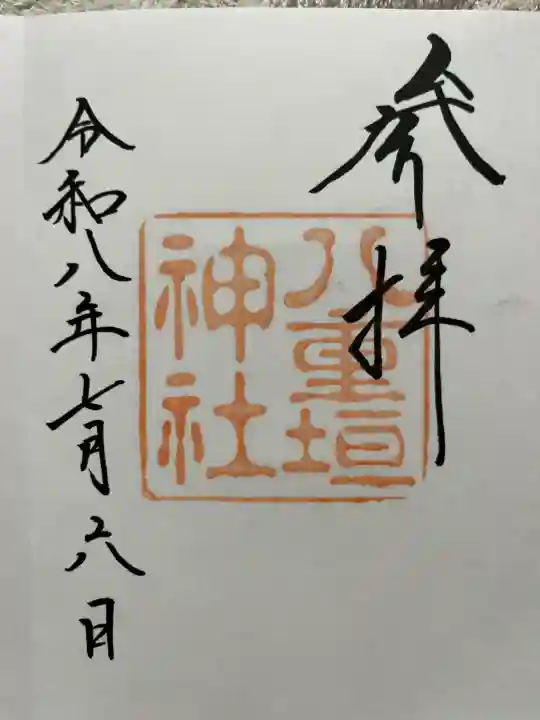 参拝
八重垣
神社
令和八年七月六日